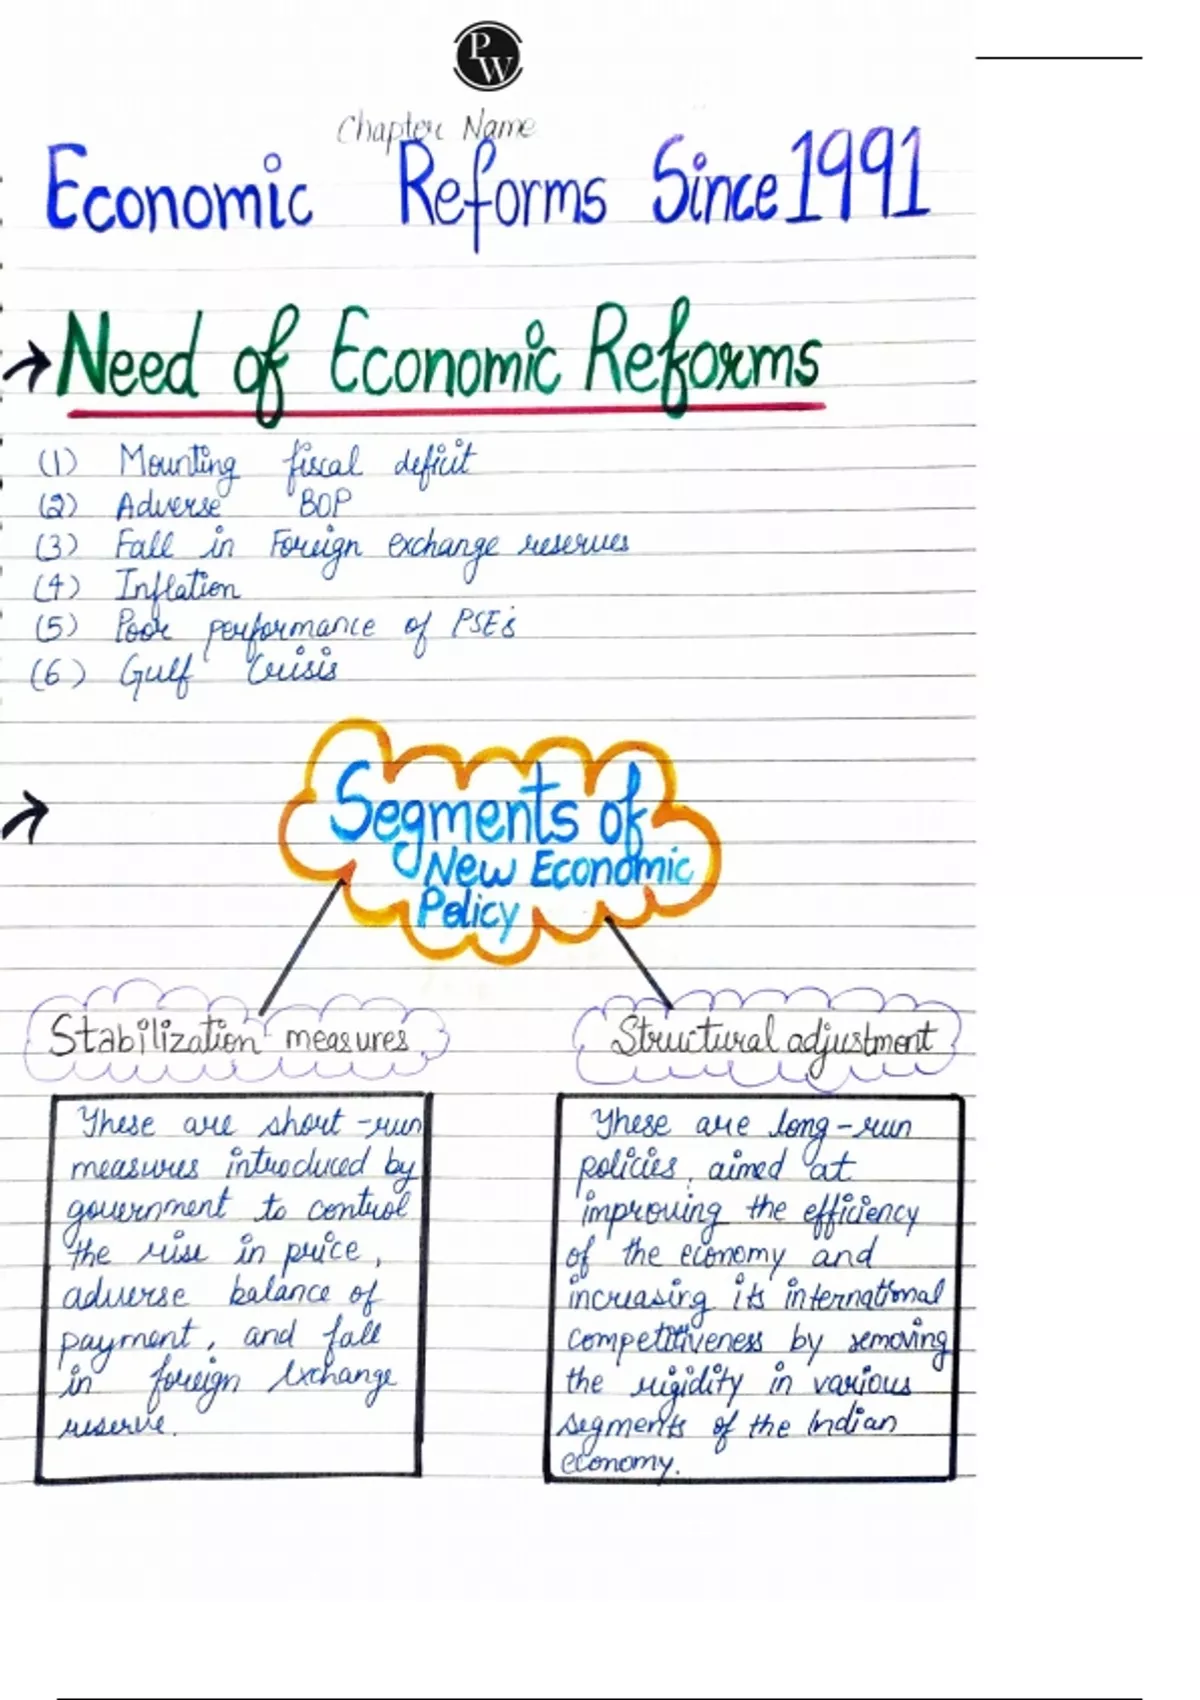 PW
Chapter Name
Economic Reforms Since 1991
→ Need of Economic Reforms
(1) Mounting fiscal deficit
(2) Adverse BOP
(3) Fall in Foreign exchange reserves
(4) Inflation
(5) Poor performance of PSEs
(6) Gulf Crisis
→
Segments of
New Economic
Policy
Stabilization measures
These are short-run
measures introduced by
government to control
the rise in price,
adverse balance of
payment, and fall
in foreign exchange
reserve.
Structural adjustment
These are long-run
policies, aimed at
improving the efficiency
of the economy and
increasing its international
competitiveness by removing
the rigidity in various
segments of the Indian
economy.